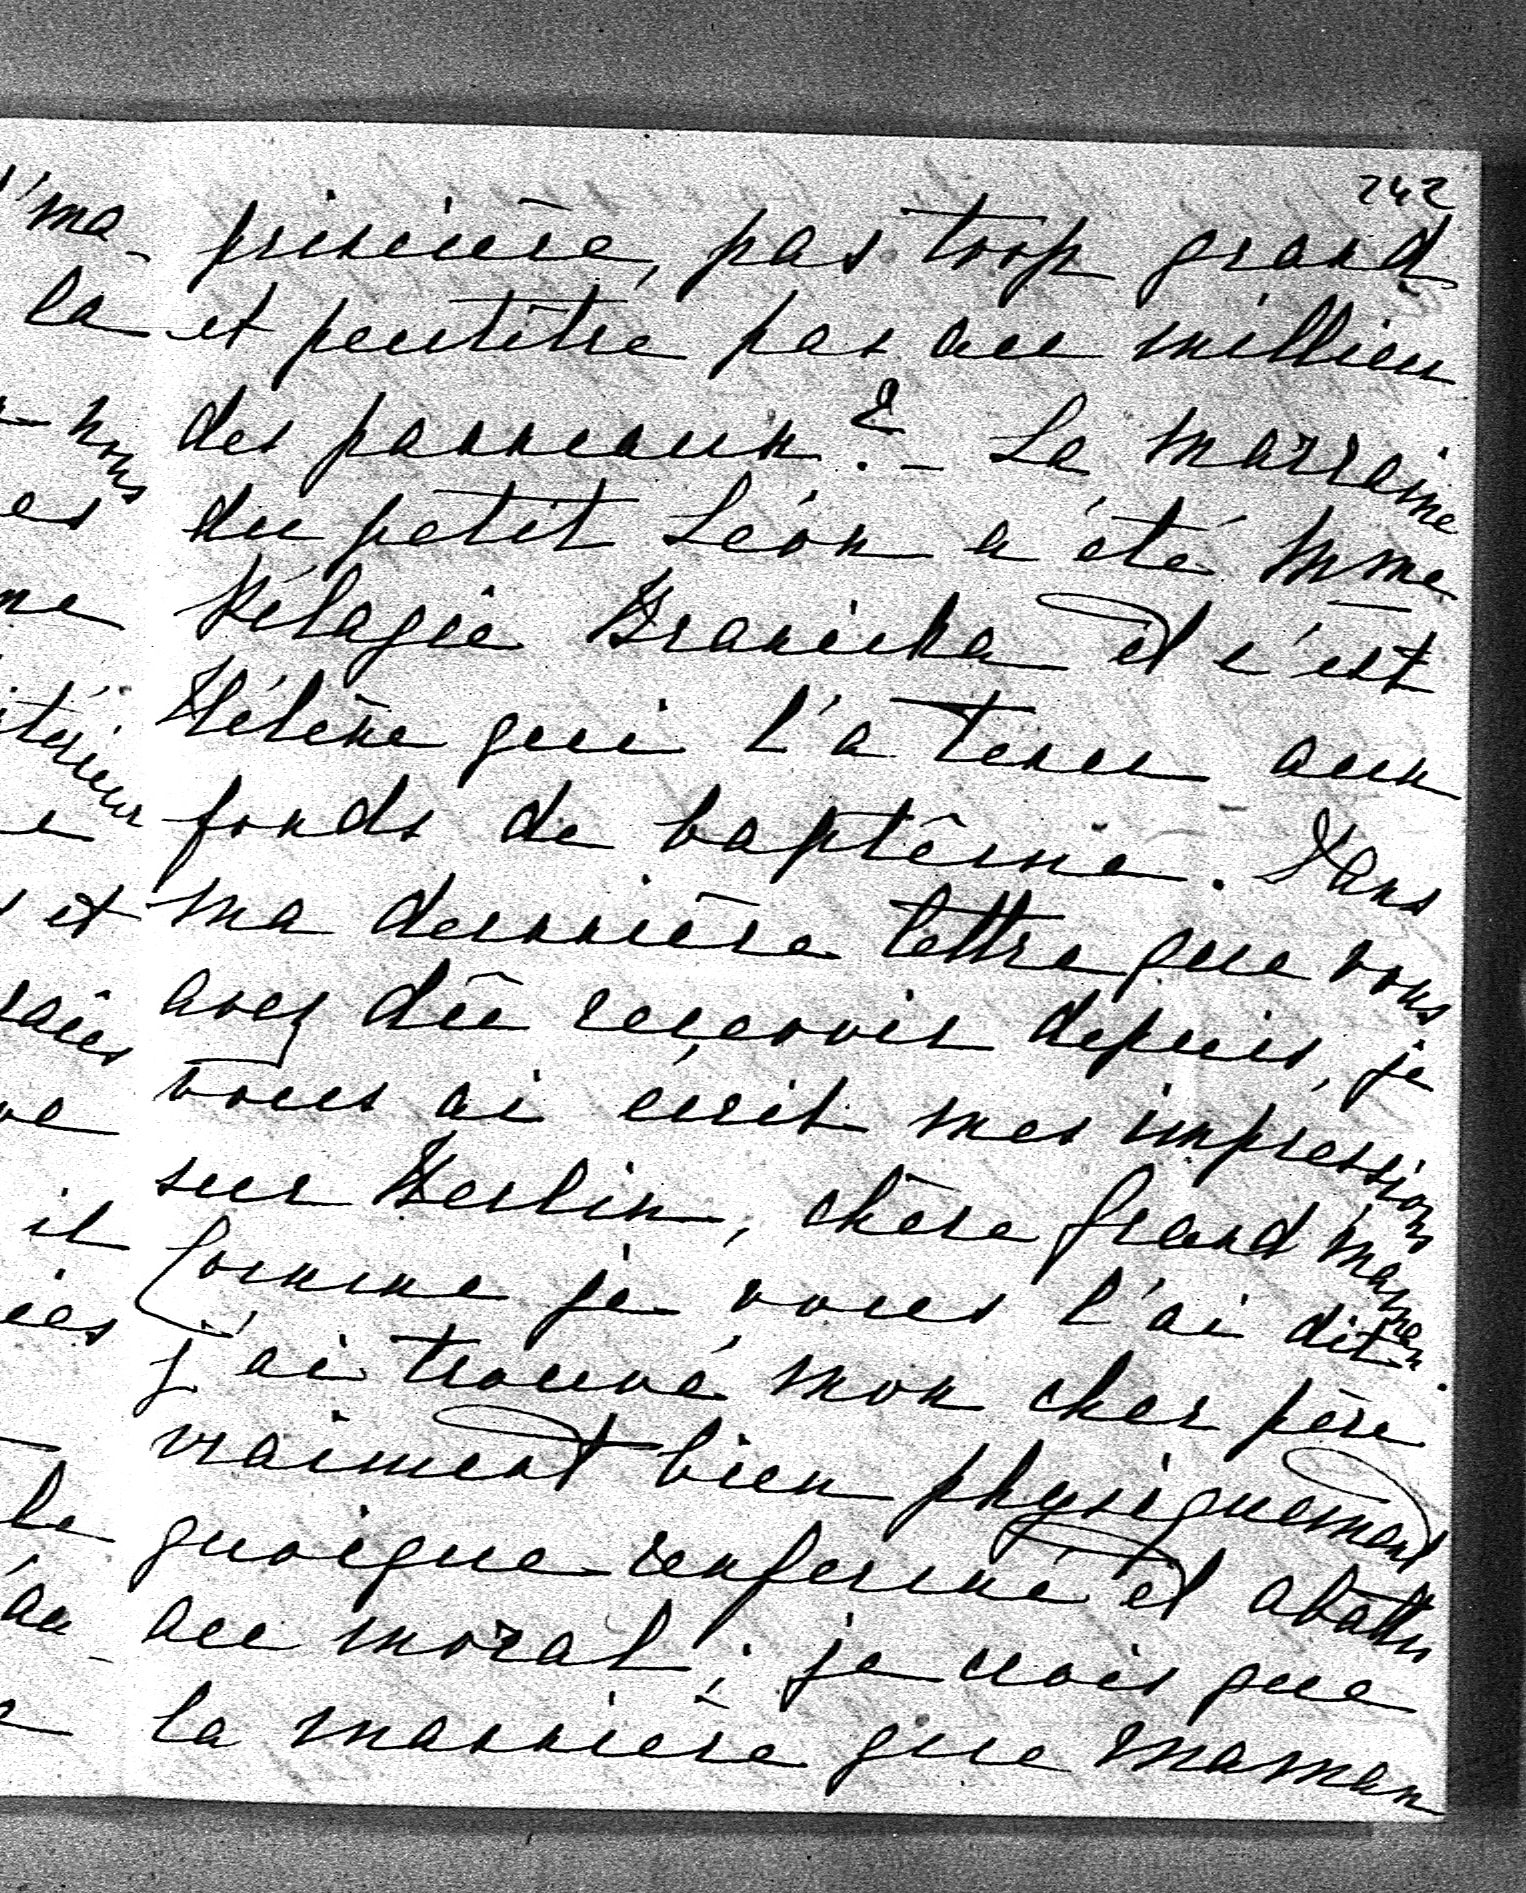 242
princière, pas trop grand
et peutêtre pas au millieu
des panneaux? - La marraine
du petit Léon a été Mme
Pélagie Branicka et c'est
Hélène qui l'a tenu aux
fonds de baptême. Dans
ma dernnière lettre que vous
avez dû recevoir depuis, je
vous ai écrit mes impressions
sur Berlin, chère Grand'maman.
Comme je vous l'ai dit
j'ai trouvé mon cher père
vraiment bien physiquement
quoique renfermé et abattu
au moral; je crois que
la mannière que maman
'ma-
la
nous
es
ne
itérieur
e
s et
raies
ve
il
ies
la
'au-